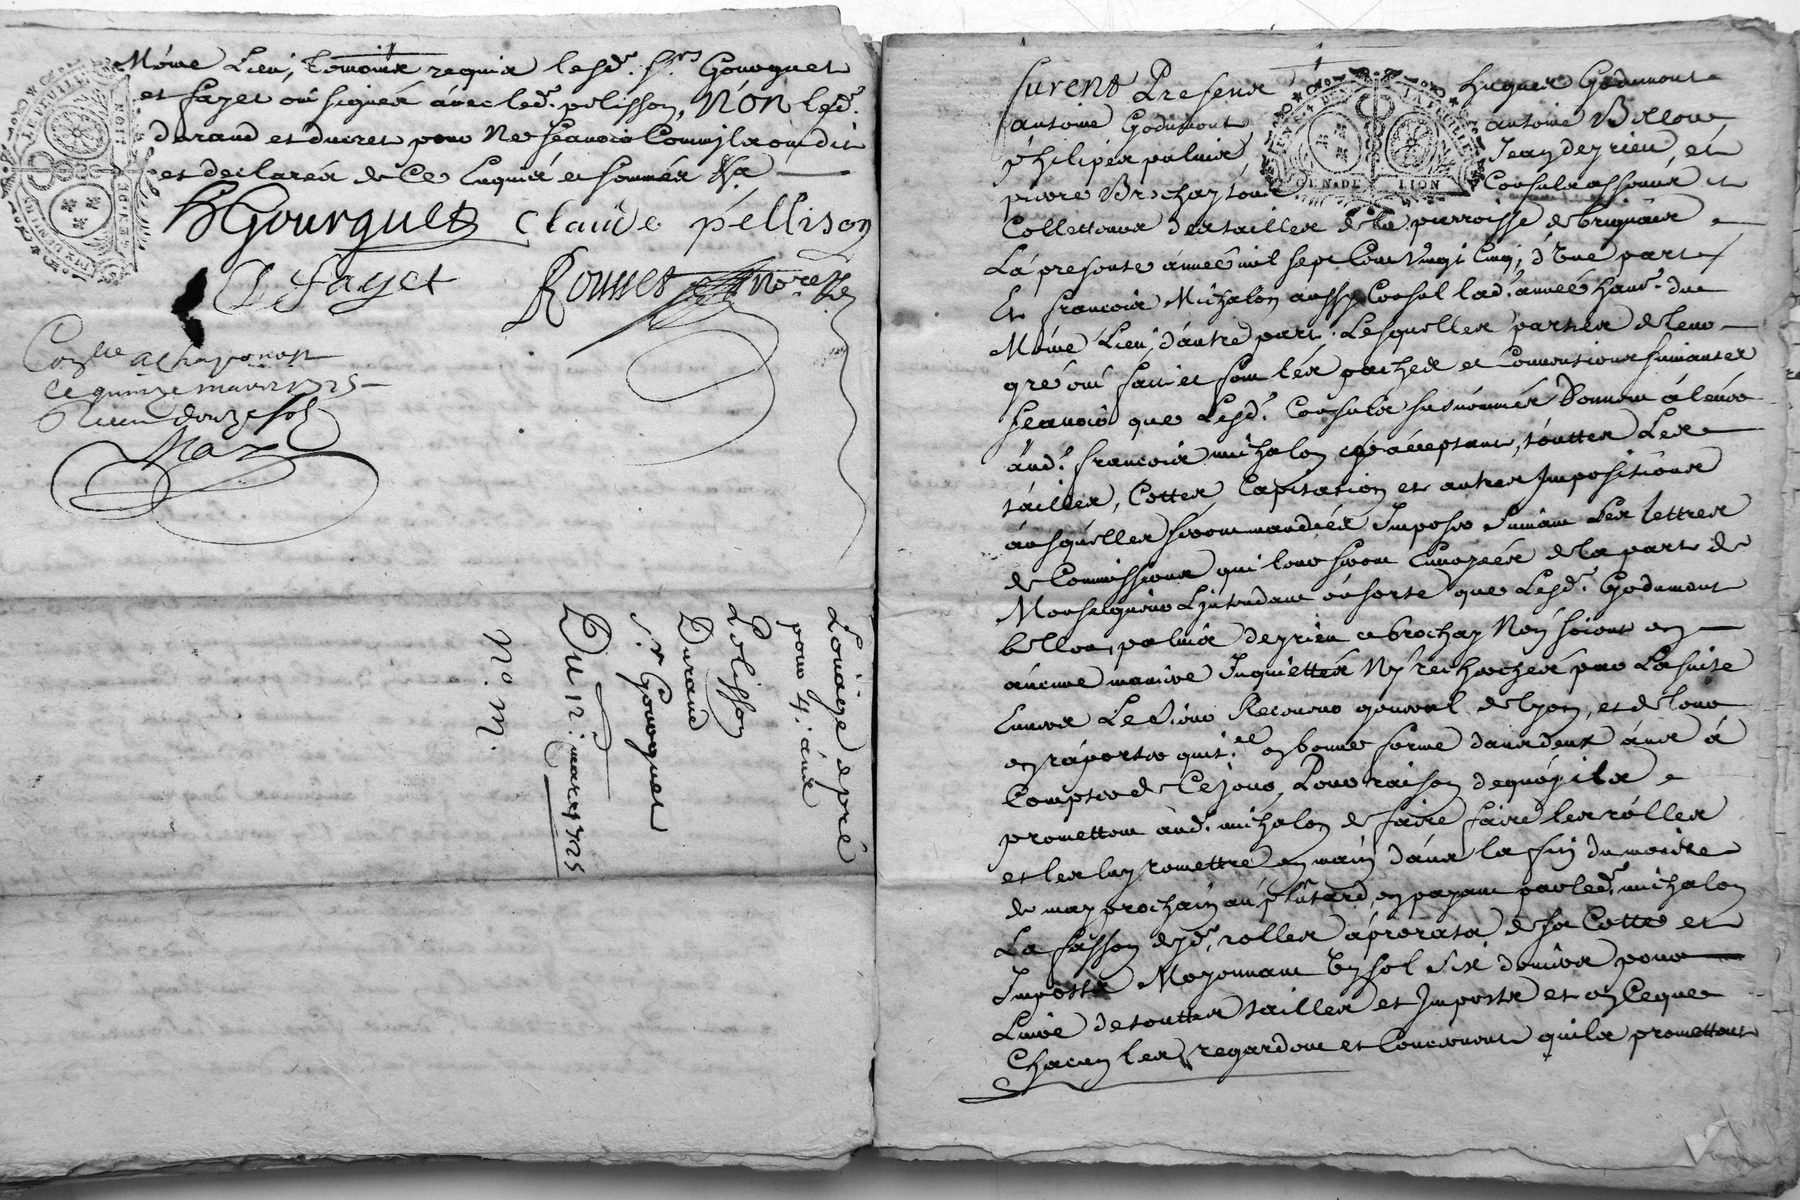 Même Lieu, temoins requis lesd. Srs Gourguet
et fayet ont signés avec led. pelisson, NON led.
durand et ducret pour Ne scavoir Comme ils ont dit
et declarés de Ce Enquis et sommés
Gourguet Claude pellison
fayet Ronnet nore
Conlle a chaponost
ce quinze mars 1725
Recu douze sols
Louage de pré
pour 4. ans
Pelisson
Durand
Sr Gourguet
Du 12: mars 1725
N. m.
furent Presens Hugues Godimont
antoine Godimont antoine Bellon
philipes palmis, Jean deyrieu, et
pierre Brochay tous Consuls asseurs et
Collecteurs des tailles de la parroisse de brignais
La presente année mil sept Cent Vingt Cinq, d'Une part
Et francois Michalon aussy Consul lad. année hant. du
Même Lieu, d'autre part, Lesquelles parties de leur
gré ont fait et font les paches et Conventions suivantes
scavoir que Lesd. Consuls susnommés donnent à lever
aud. francois michalon acceptant, touttes Les
tailles, Cottes Capitation et autres Impositions
ausquelles seront mandées Imposer suivant Les lettres
de Commissions qui leur seront Envoyées de la part de
Monseigneur L'jntendant ensorte que Lesd. Godimont
bellon, palmis deyrieu et brochay Non soient en
aucune maniere Inquiettés Ny recherchés par La suite
Envers Le Sieur Receveur general de Lyon, et de leur
en raporter quit.ce en bonne forme dans deux ans à
Compter de Ce jour, Pour raison de quoy ils
promettent aud. michalon de faire faire les rolles
et les luy remettre en main dans la fin du mois
de may prochain au plutard, en payant par led. michalon
La fasson desd. rolles aprorata de sa Cotte et
Imposts Moyennant Un sol six deniers pour
Livre de touttes tailles et Imposts et en Ce que
Chacun les regardent et Concernent qu'ils promettent